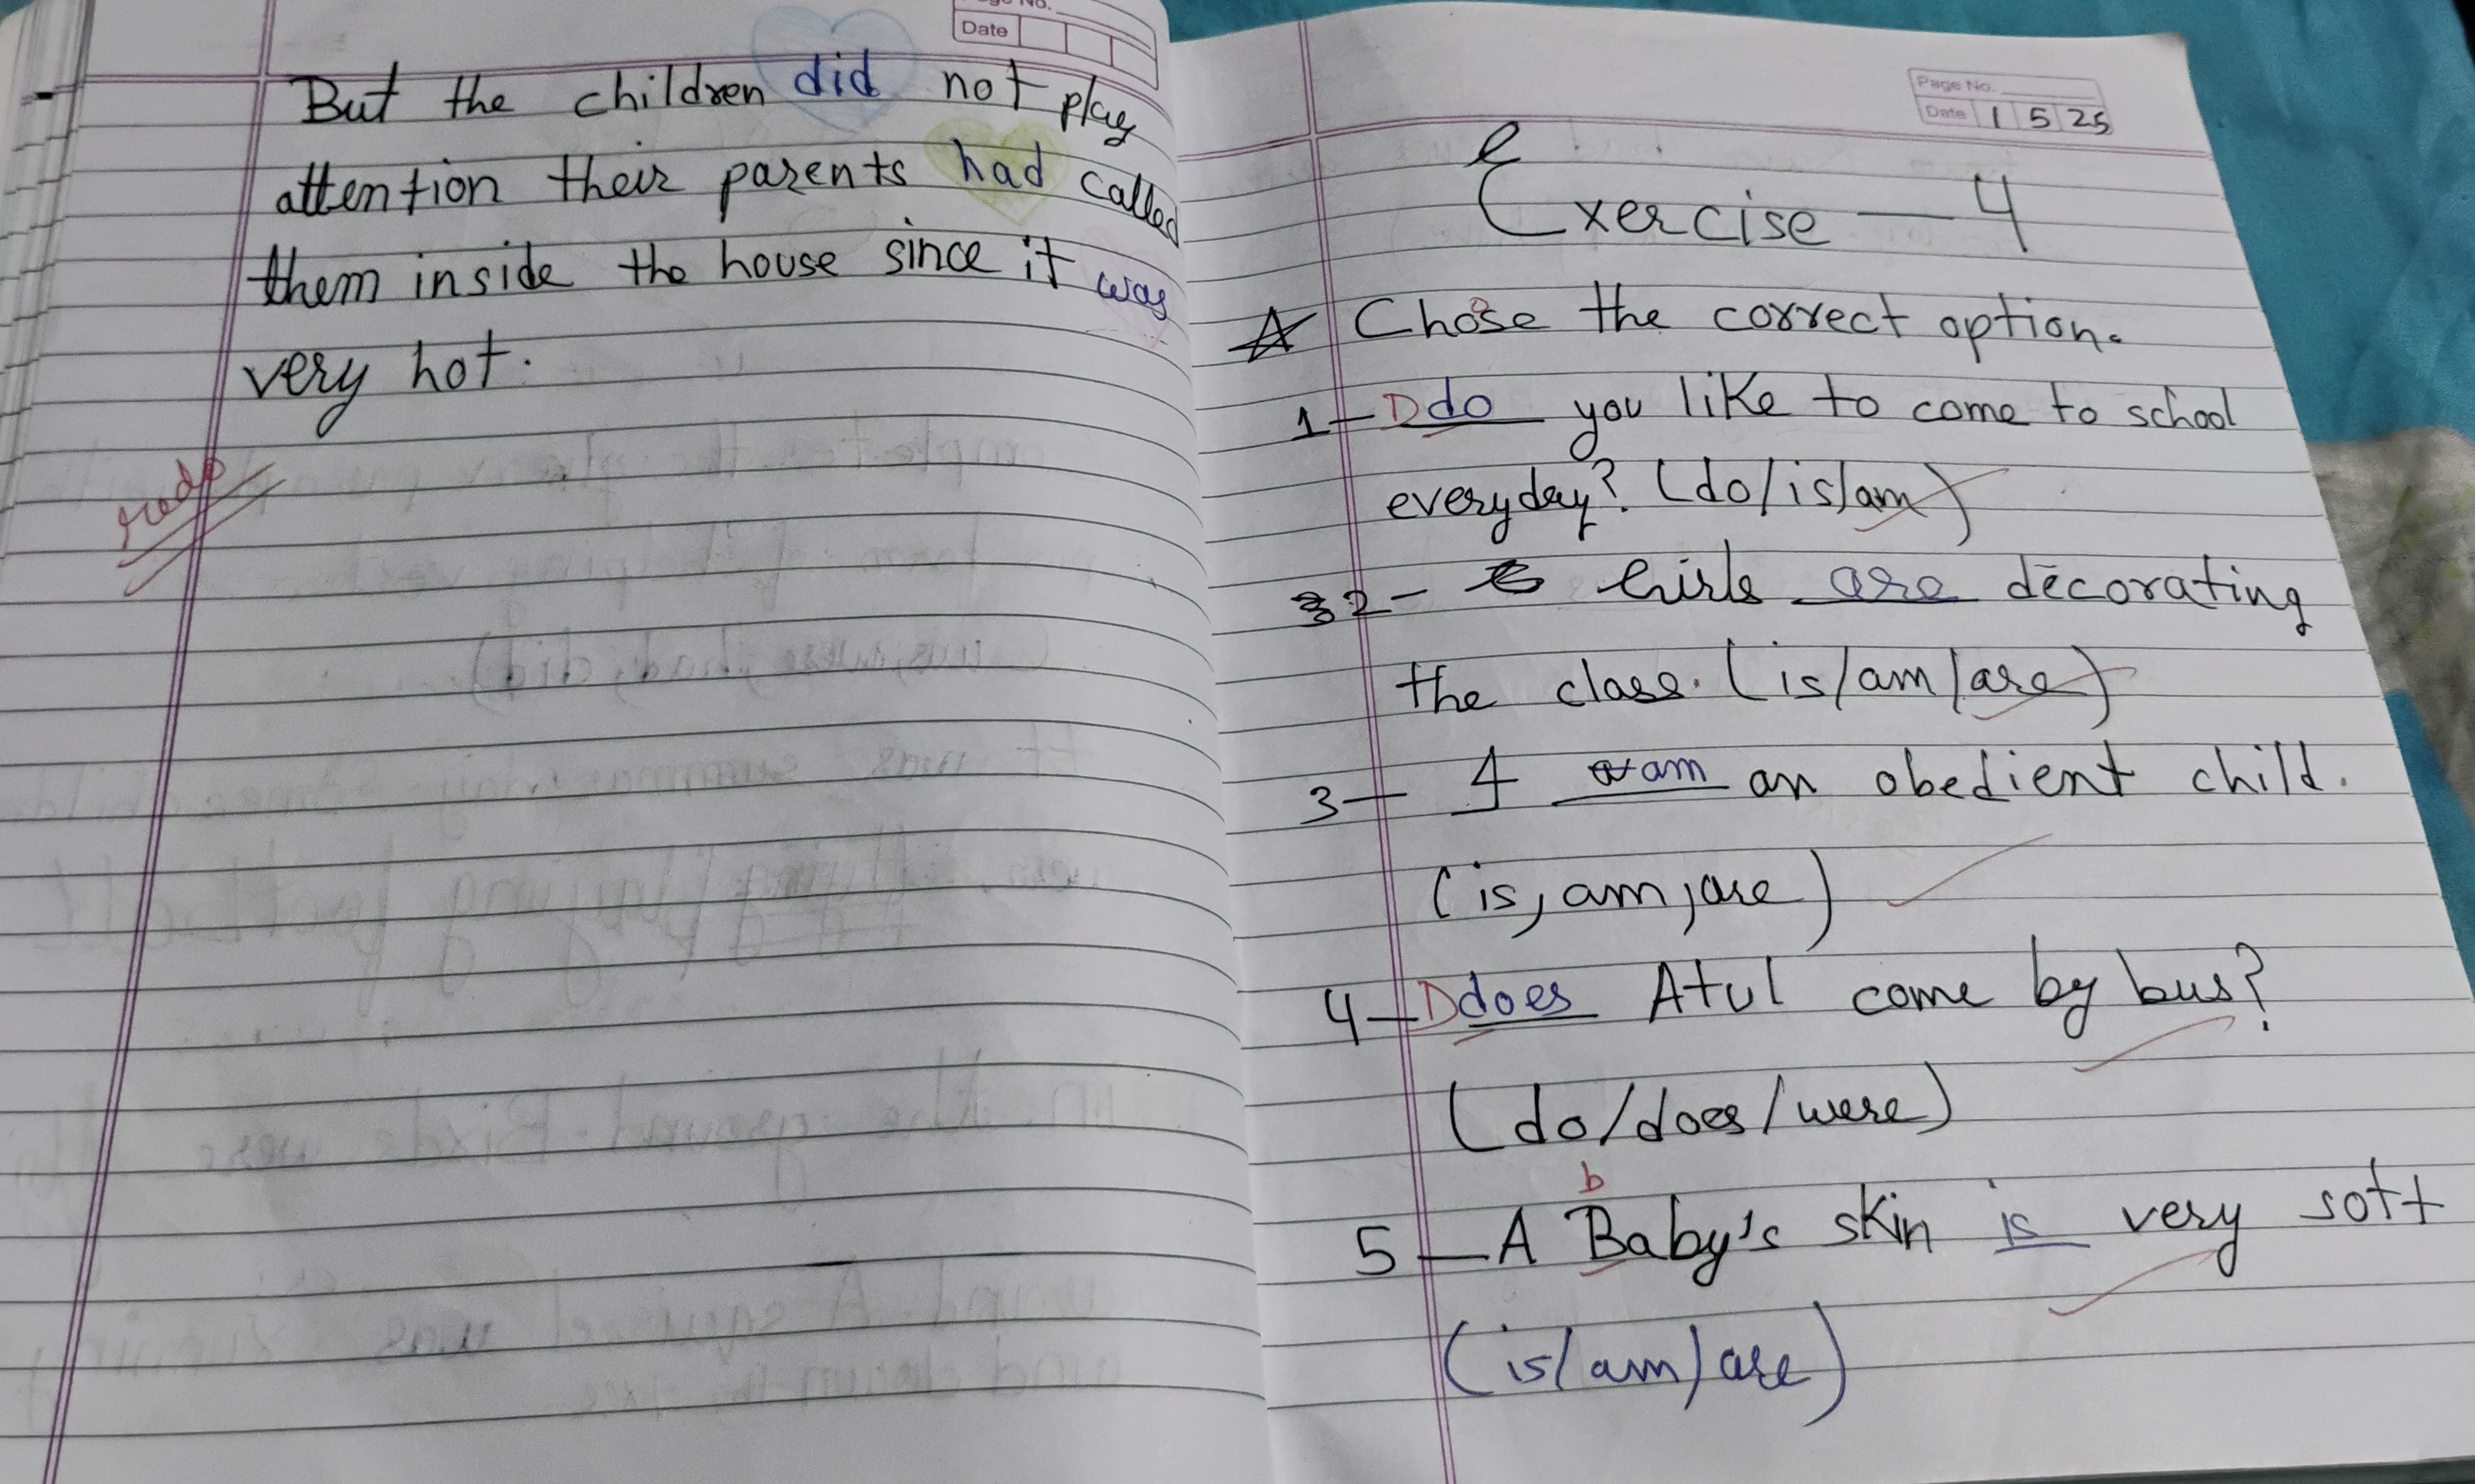 Page No.
Date
But the children did not play
attention their parents had called
them inside the house since it was
very hot.
redo
Page No.
Date 1 5 25
e
Exercise — 4
A Chose the correct option.
o
1 — D do you like to come to school
everyday? (do/is/am)
2 - Girls are decorating
the class. (is/am/are)
3 — I am an obedient child.
(is, am, are)
4 — D does Atul come by bus?
(do/does/were)
b
5 — A Baby's skin is very soft
(is/am/are)